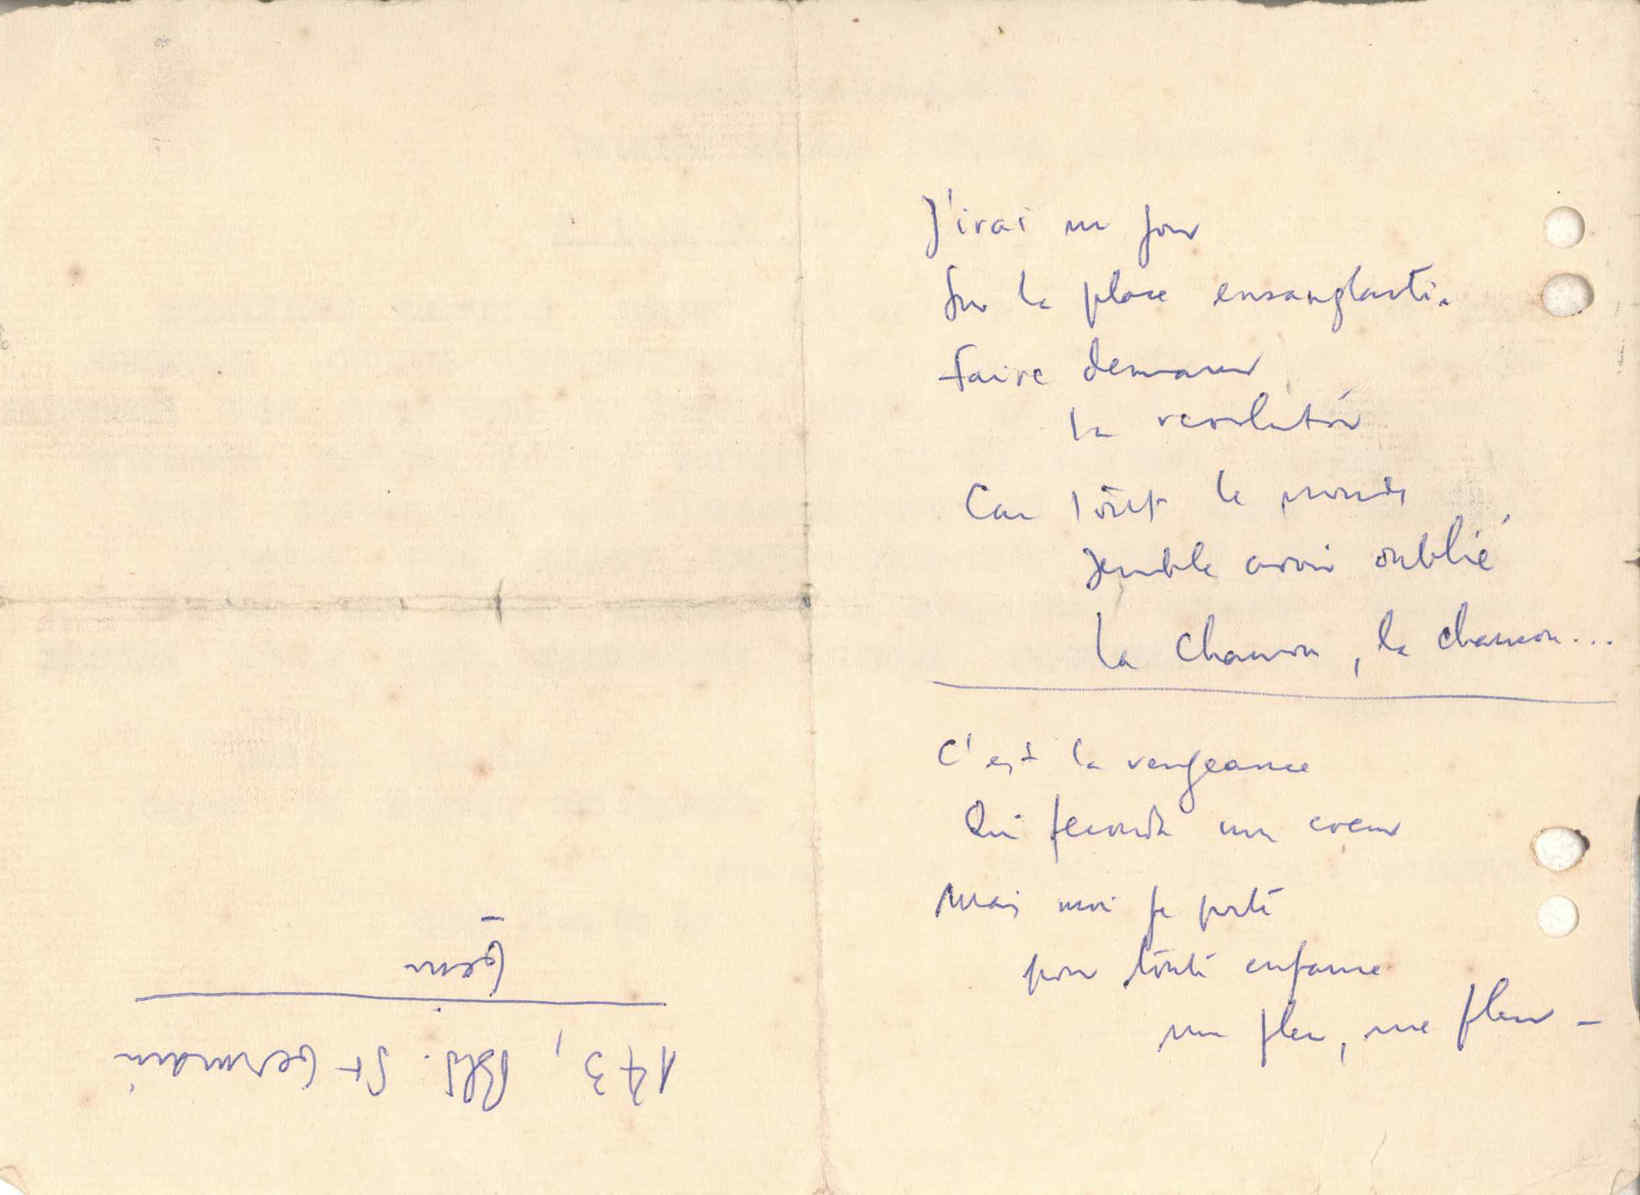 J'irai un jour
Sur la place ensanglantée
faire demarrer
la revolution
Car tout le monde
semble avoir oublié
La chanson, la chanson...
C'est la vengeance
Qui feconde un coeur
Mais moi je porte
pour toute enfance
une fleur, une fleur -
173, Bld. St Germain